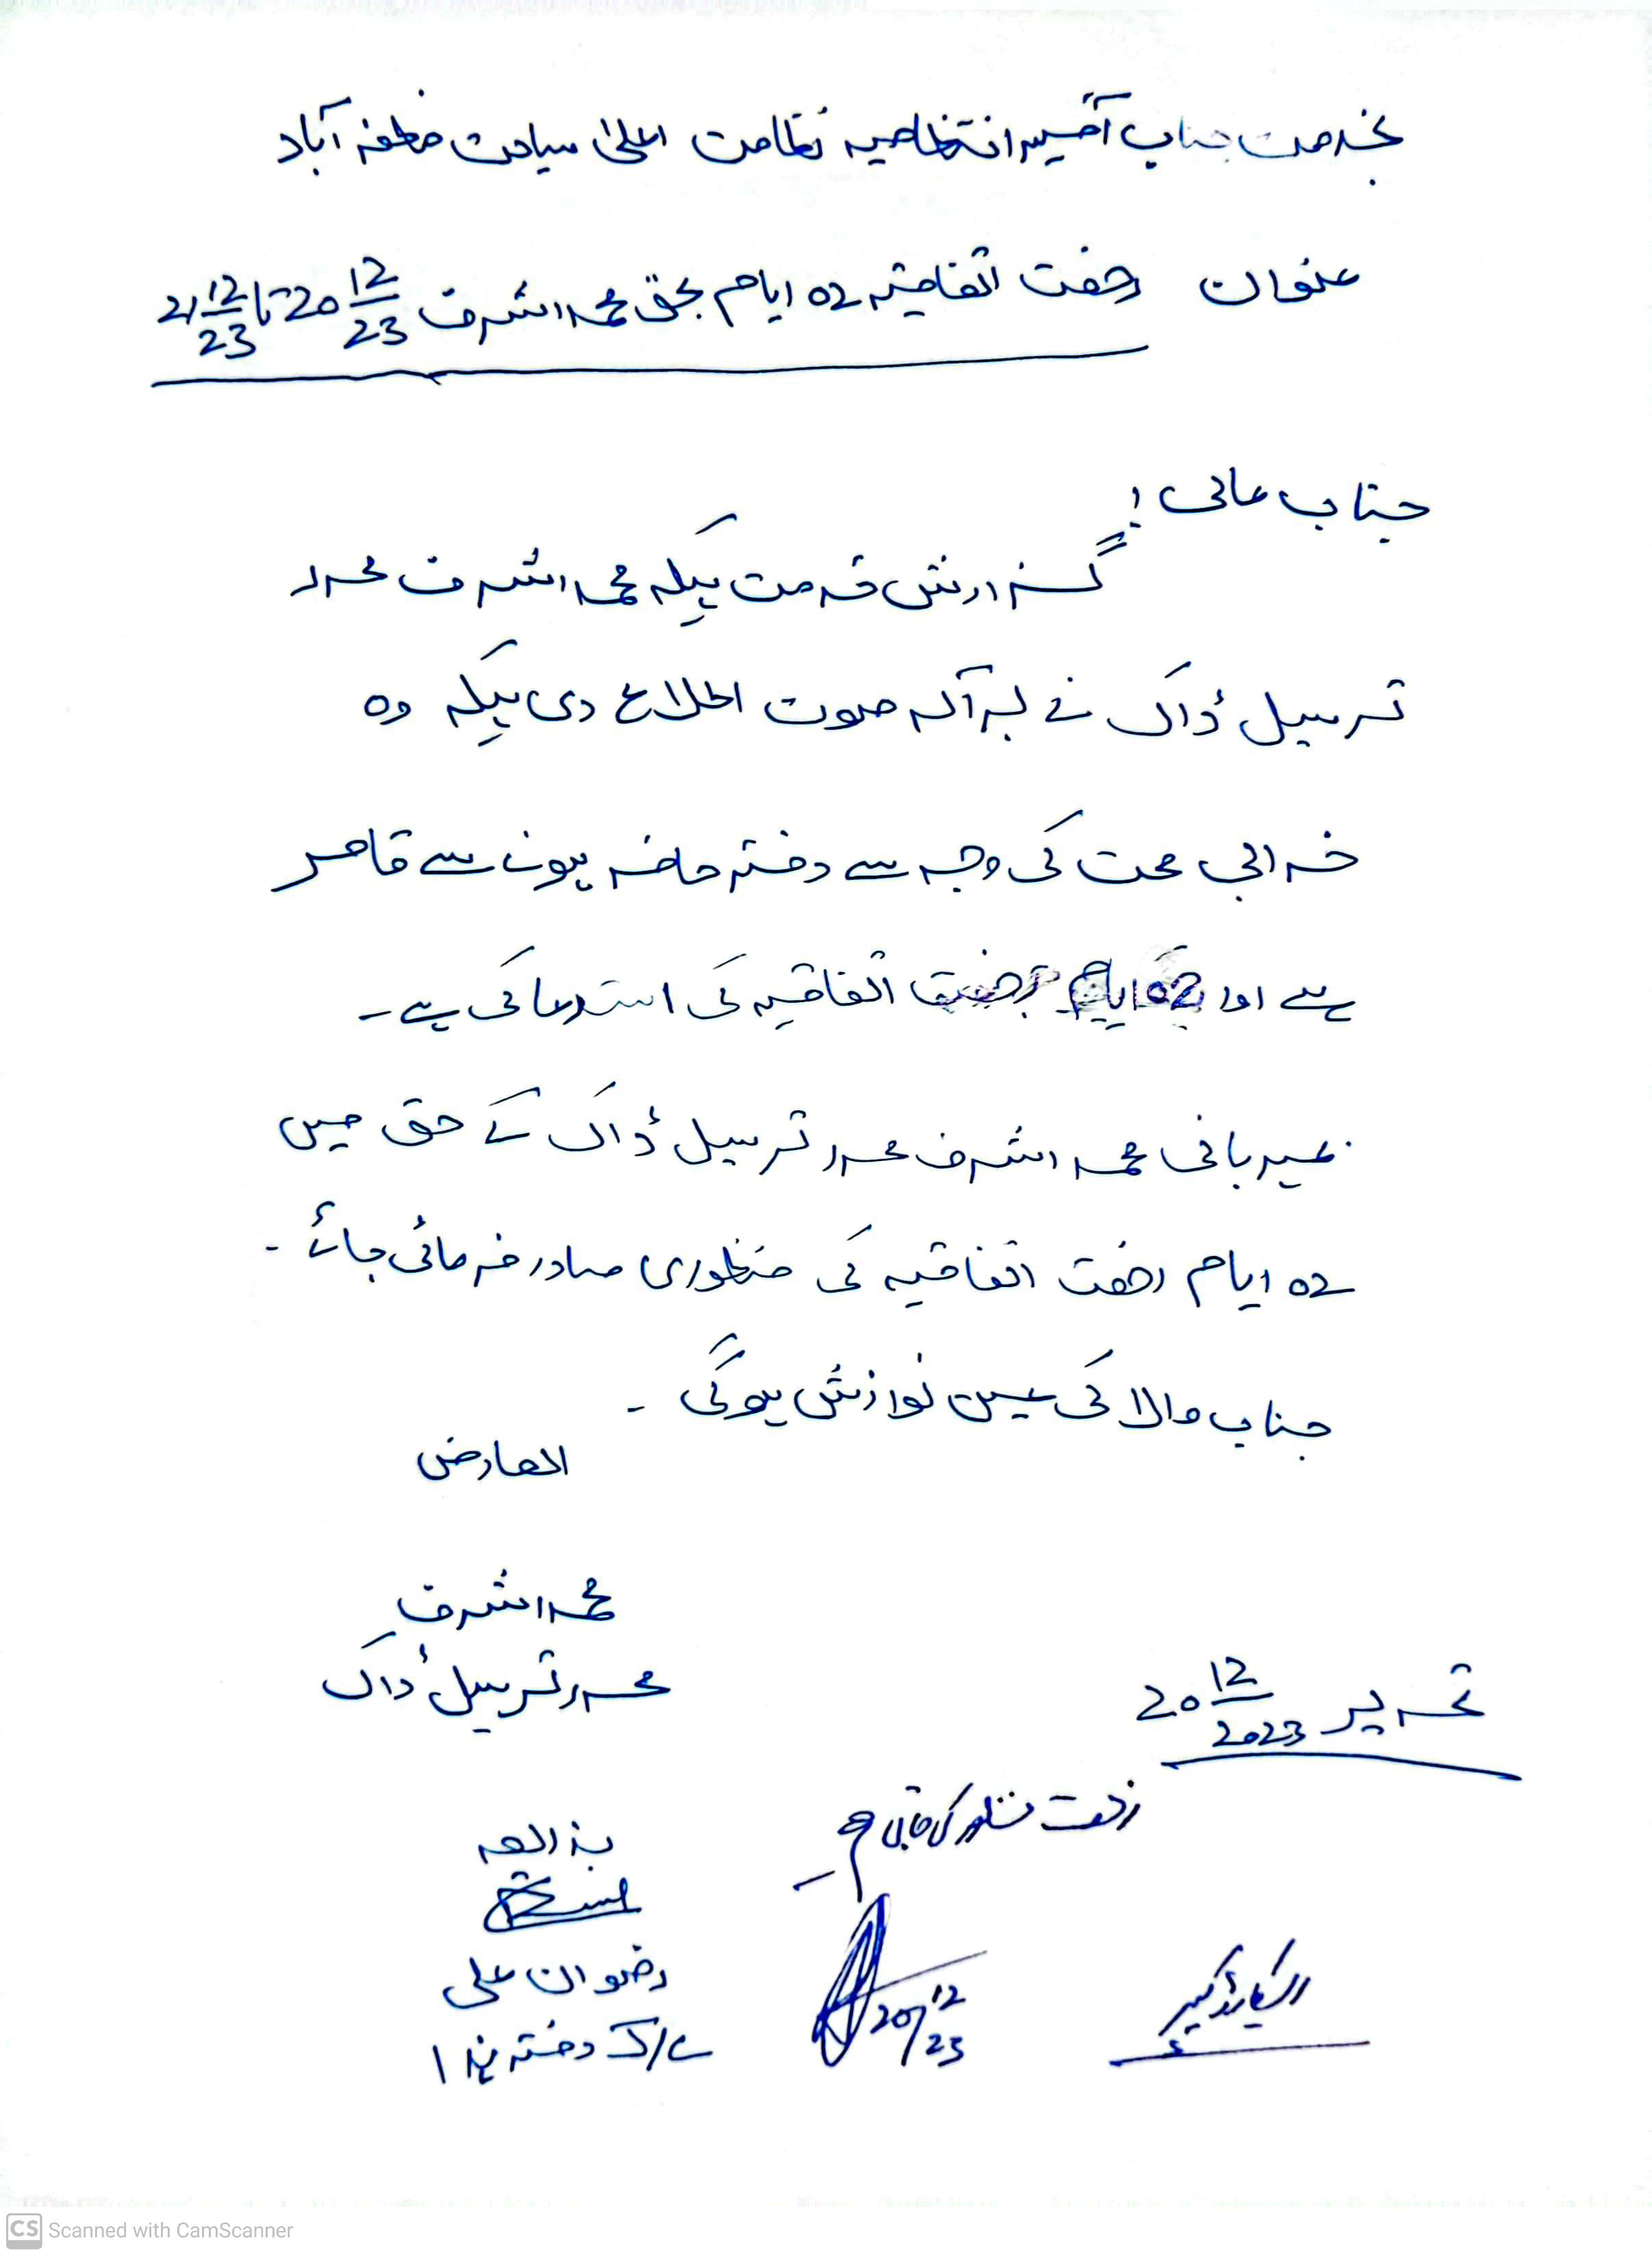 بخدمت جناب آفیسر انتظامیہ نظامت اعلیٰ سیاحت مظفرآباد
عنوان رخصت اتفاقیہ 02 ایام بحق محمد اشرف 20 12/23 تا 21 12/23
جناب عالی!
گزارش خدمت ہیکہ محمد اشرف محرر
ترسیل ڈاک نے بذریعہ آلہ صوت اطلاع دی ہیکہ وہ
خرابی صحت کی وجہ سے دفتر حاضر ہونے سے قاصر
ہے اور 02 ایام رخصت اتفاقیہ کی استدعا کی ہے۔
مہربانی محمد اشرف محرر ترسیل ڈاک کے حق میں
02 ایام رخصت اتفاقیہ کی منظوری صادر فرمائی جائے۔
جناب والا کی عین نوازش ہوگی۔
العارض
محمد اشرف
محرر ترسیل ڈاک
تحریر 20 12/2023
رخصت منظور کی جاتی ہے۔
بذریعہ
رضوان علی
کلرک دفتر ہذا
ریکارڈ کیپر
20/12/23
CS Scanned with CamScanner